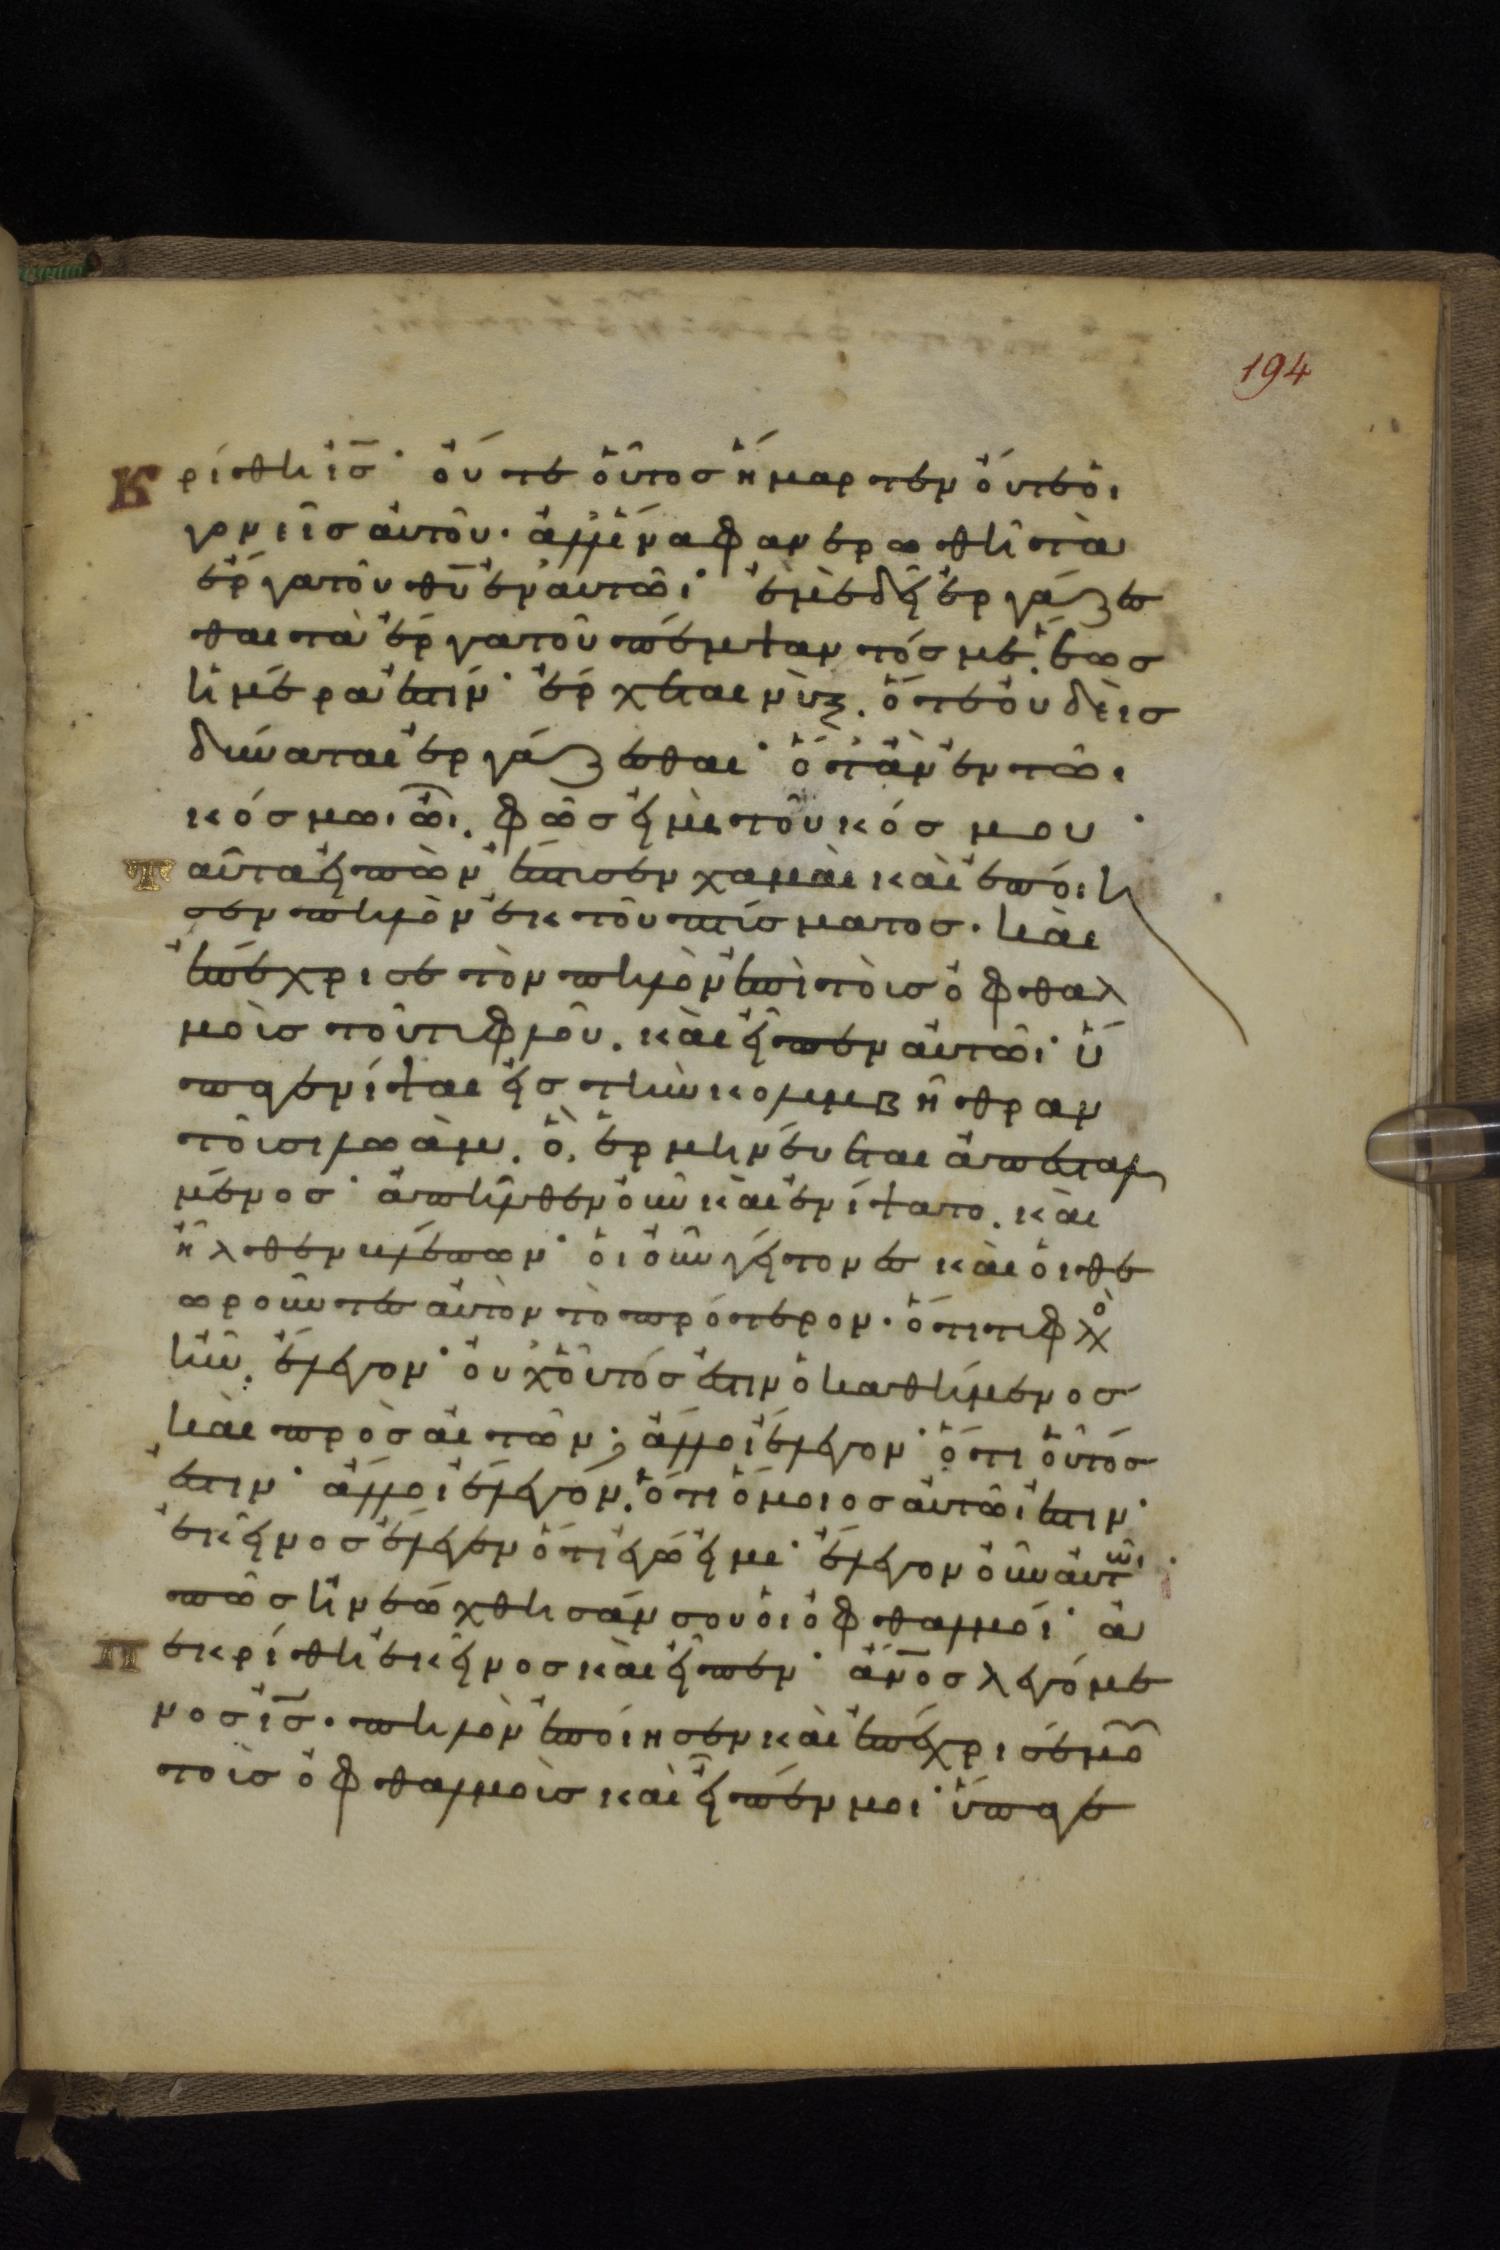 194
κρίθη ἰς̄· οὔτε οὗτος ἥμαρτεν οὔτε ὁι
γονεῖς αὐτοῦ· ἀλλ' ἵνα φανερωθῆ τὰ
ἔργα τοῦ θῡ ἐν αὐτῶι· ἐμὲ δεῖ ἐργάζεσ
θαι τὰ ἔργα τοῦ πέμψαντός με. ἕως
ἡμέρα ἐστίν· ἔρχεται νὺξ. ὅτε οὐδεὶς
δύναται ἐργάζεσθαι· ὅταν ἐν τῶι
κόσμωι ὦι. φῶς εἰμι τοῦ κόσμου·
ταῦτα εἰπὼν ἔπτυσεν χαμαὶ καὶ ἐποίη
σεν πηλὸν ἐκ τοῦ πτύσματος· καὶ
ἐπέχρισε τὸν πηλὸν ἐπὶ τοὺς ὀφθαλ
μοὺς τοῦ τυφλοῦ. καὶ εἶπεν αὐτῶι· ὕ
παγε νίψαι εἰς τὴν κολυμβήθραν
τοῦ σιλωάμ. ὃ, ἑρμηνεύεται ἀπεσταλ
μένος· ἀπῆλθεν οὖν καὶ ἐνίψατο. καὶ
ἦλθεν βλέπων· ὁι οὖν γείτονες καὶ ὁι θε
ωροῦντες αὐτὸν τὸ πρότερον· ὅτι τυφλὸ
ἦν. ἔλεγον· οὐχ οὗτός ἐστιν ὁ καθήμενος
καὶ προσαιτῶν; ἄλλοι ἔλεγον· ὅτι οὗτός
ἐστιν· ἄλλοι ἔλεγον. ὅτι ὅμοιος αὐτῶι ἐστιν·
ἐκεῖνος ἔλεγεν ὅτι ἐγώ εἰμι· ἔλεγον οὖν αὐτῶι·
πῶς ἠνεώχθησάν σου ὁι ὀφθαλμοί· ἀ
πεκρίθη ἐκεῖνος καὶ εἶπεν· ἄν̄ος λεγόμε
νος ἰς̄· πηλὸν ἐποίησεν καὶ ἐπέχρισέ μου
τοὺς ὀφθαλμοὺς καὶ εἶπέν μοι· ὕπαγε